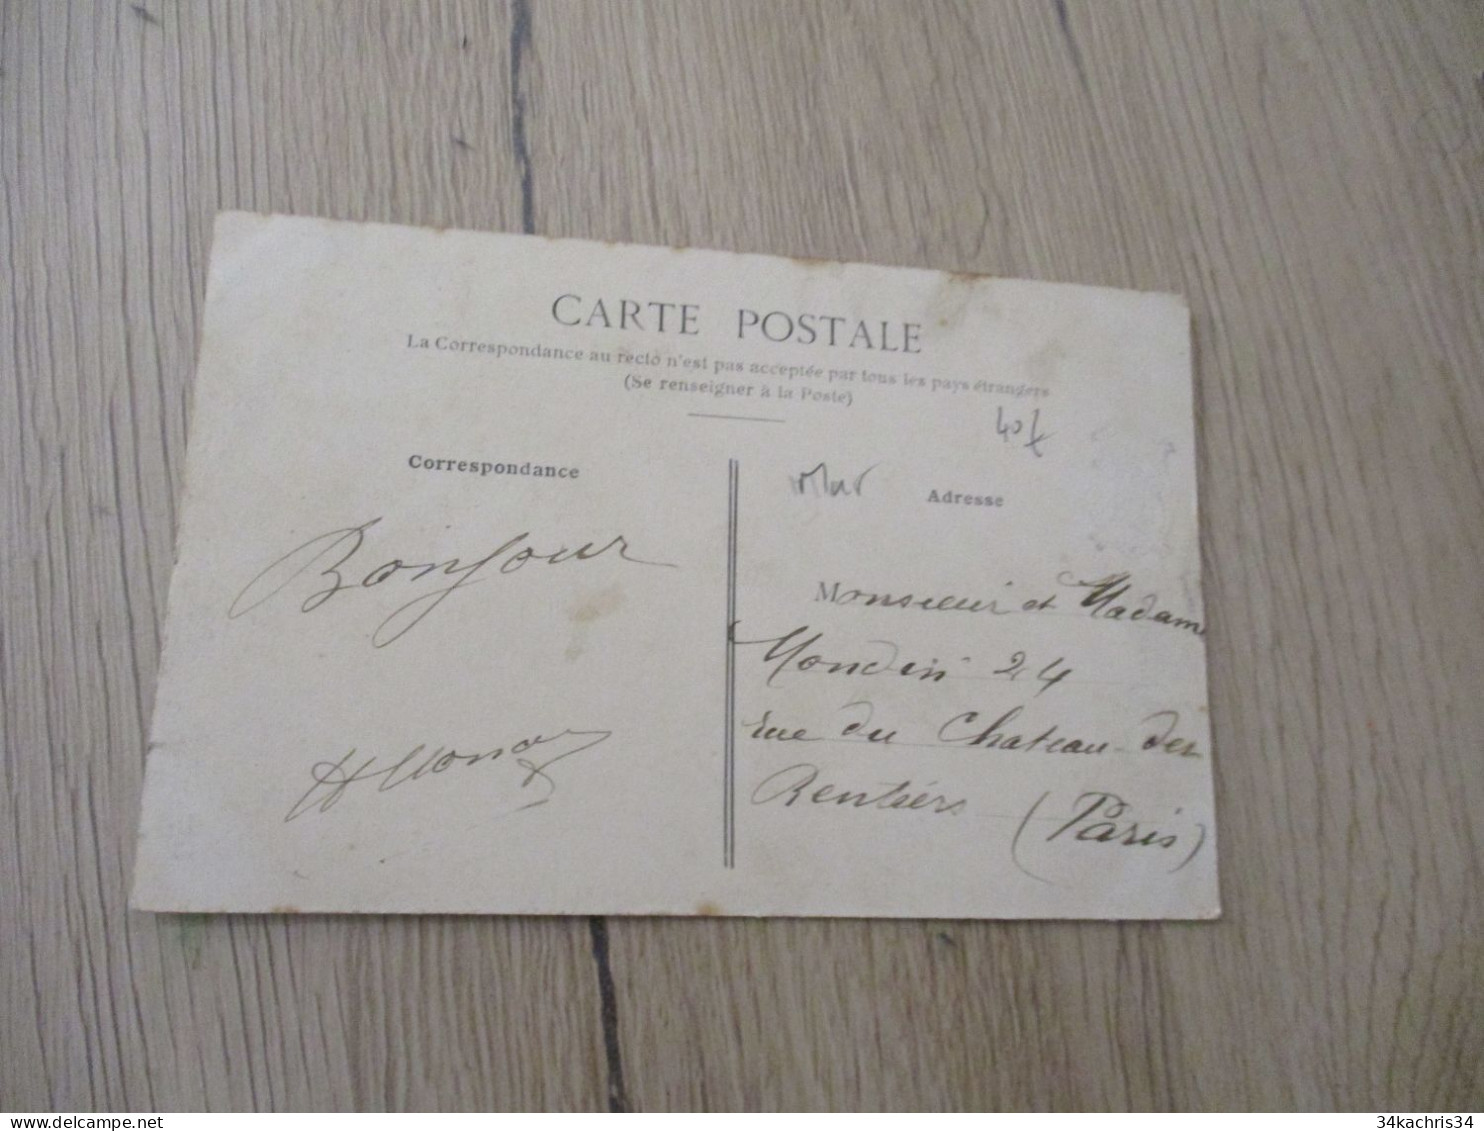 CARTE POSTALE
La Correspondance au recto n'est pas acceptée par tous les pays étrangers
(Se renseigner à la Poste)
40f
Correspondance
Adresse
Bonjour
Monsieur et Madame
Mondin 24
rue du Chateau des
Rentiers (Paris)
delcampe.net
34kachris34